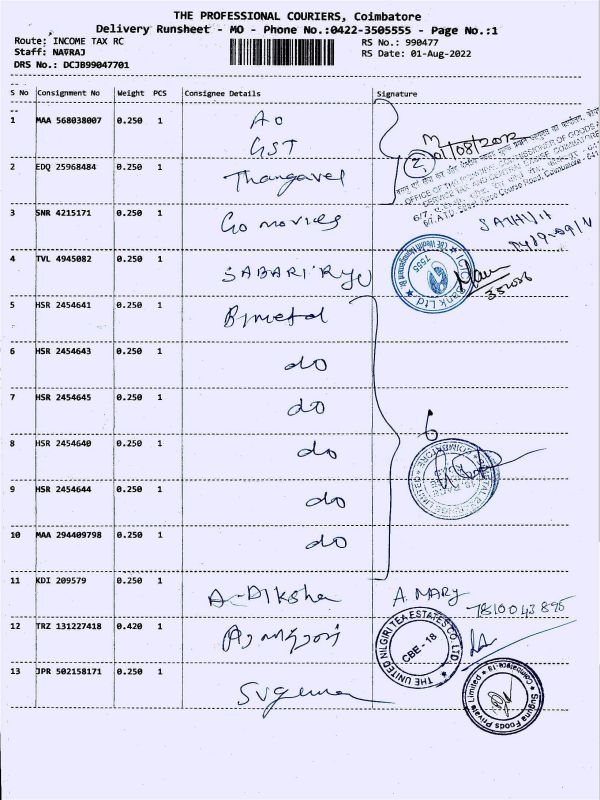 THE PROFESSIONAL COURIERS, Coimbatore
Delivery Runsheet - MO - Phone No.:0422-3505555 - Page No.:1
Route: INCOME TAX RC
RS No.: 990477
Staff: NAVRAJ
RS Date: 01-Aug-2022
DRS No.: DCJB99047701
S No Consignment No Weight PCS Consignee Details Signature
1 MAA 568038007 0.250 1 AO
GST
01/08/2022
2 EDQ 25968484 0.250 1 Thangavel
2
3 SNR 4215171 0.250 1 Go movies
4 TVL 4945082 0.250 1 SABARI
5 HSR 2454641 0.250 1 Bimetal
6 HSR 2454643 0.250 1 do
7 HSR 2454645 0.250 1 do
8 HSR 2454640 0.250 1 do
6
9 HSR 2454644 0.250 1 do
10 MAA 294409798 0.250 1 do
11 KDI 209579 0.250 1 A-Diksha A. MARY
7810043895
12 TRZ 131227418 0.420 1
THE UNITED NILGIRI TEA ESTATES CO. LTD.
CBE - 18
13 JPR 502158171 0.250 1 Suguna
Suguna Foods Private Limited
Coimbatore-18